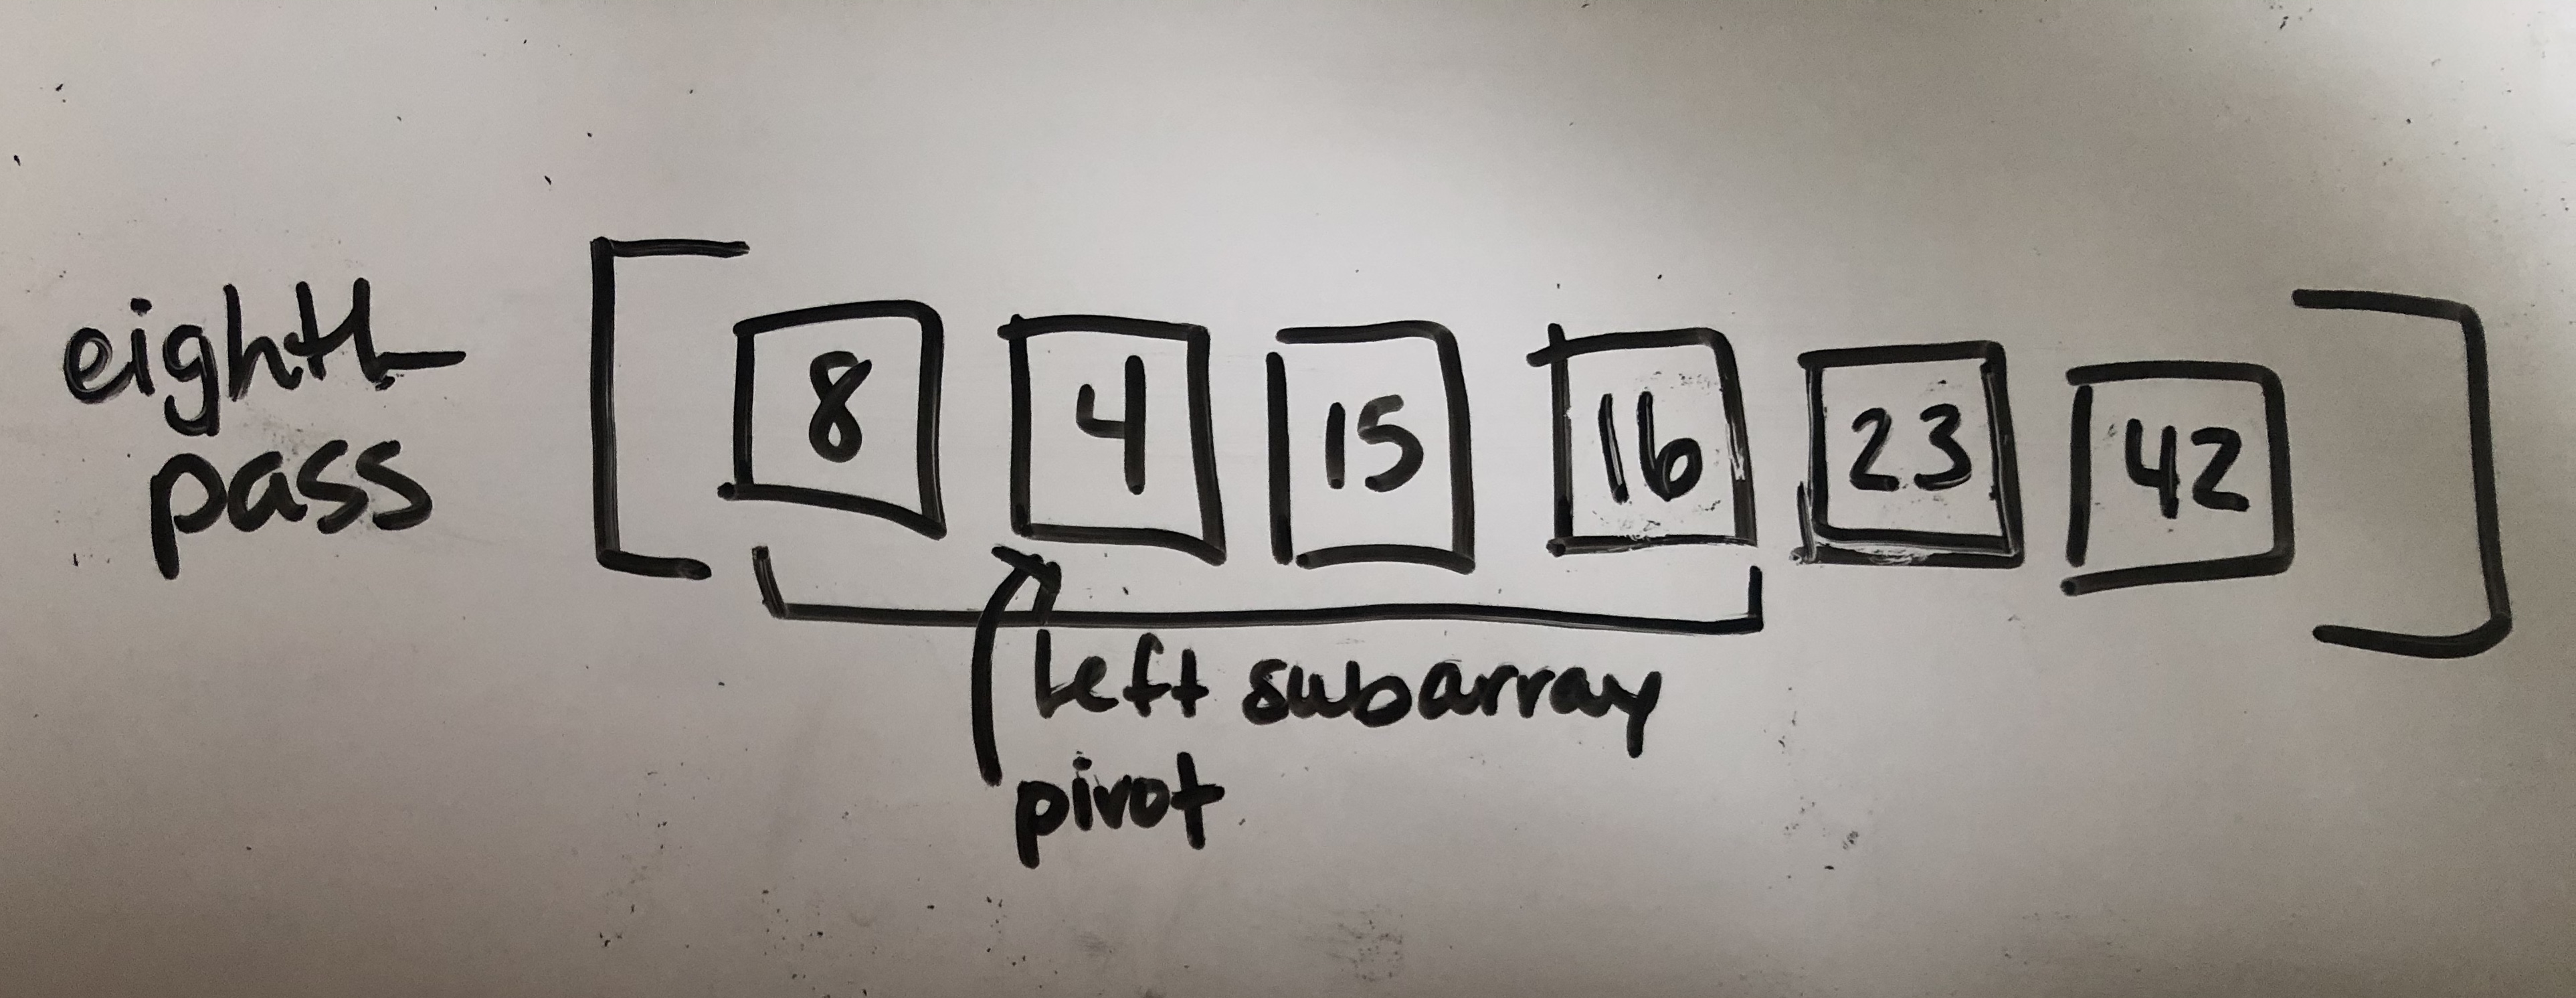 eighth
pass
8 4 15 16 23 42
left subarray
pivot